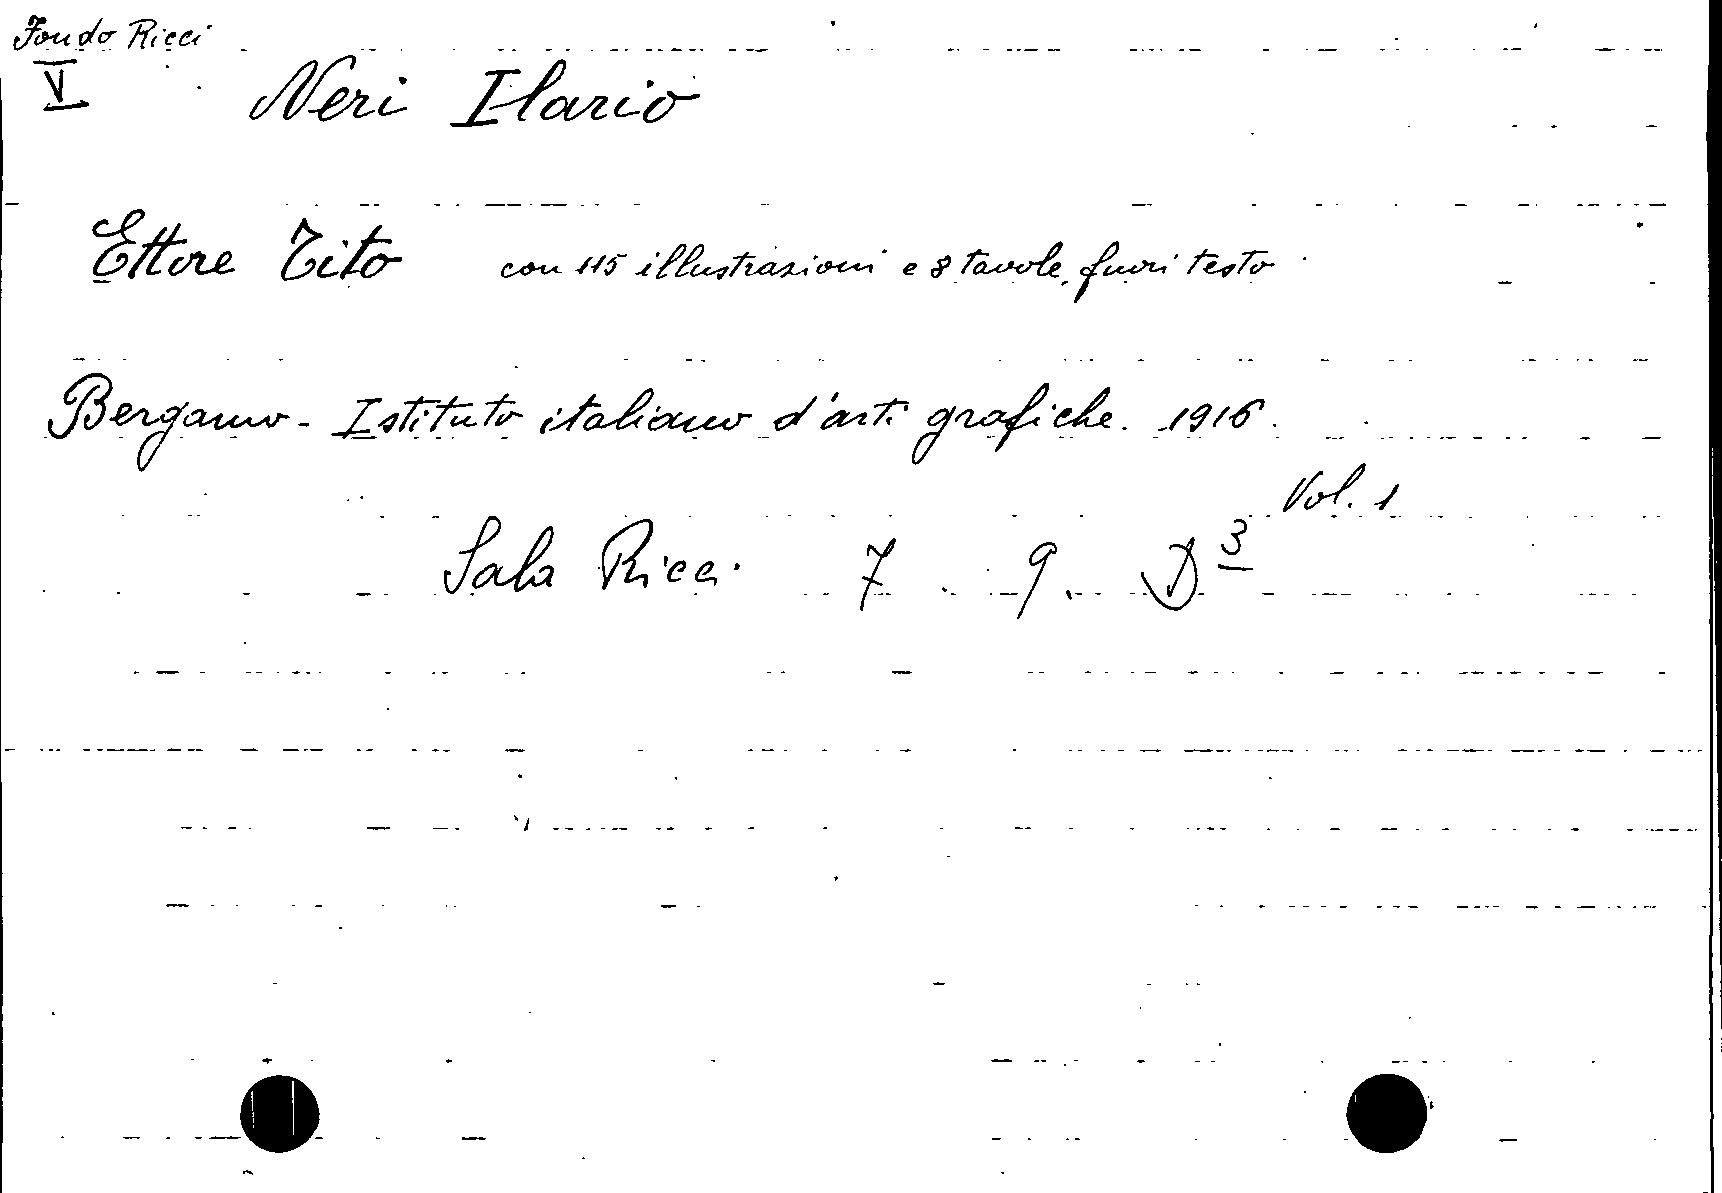 Fondo Ricci
V
Neri Ilario
Ettore Tito con 115 illustrazioni e 8 tavole fuori testo
Bergamo - Istituto italiano d'arti grafiche. 1916.
Vol. 1
Sala Ricci 7. 9. D 3